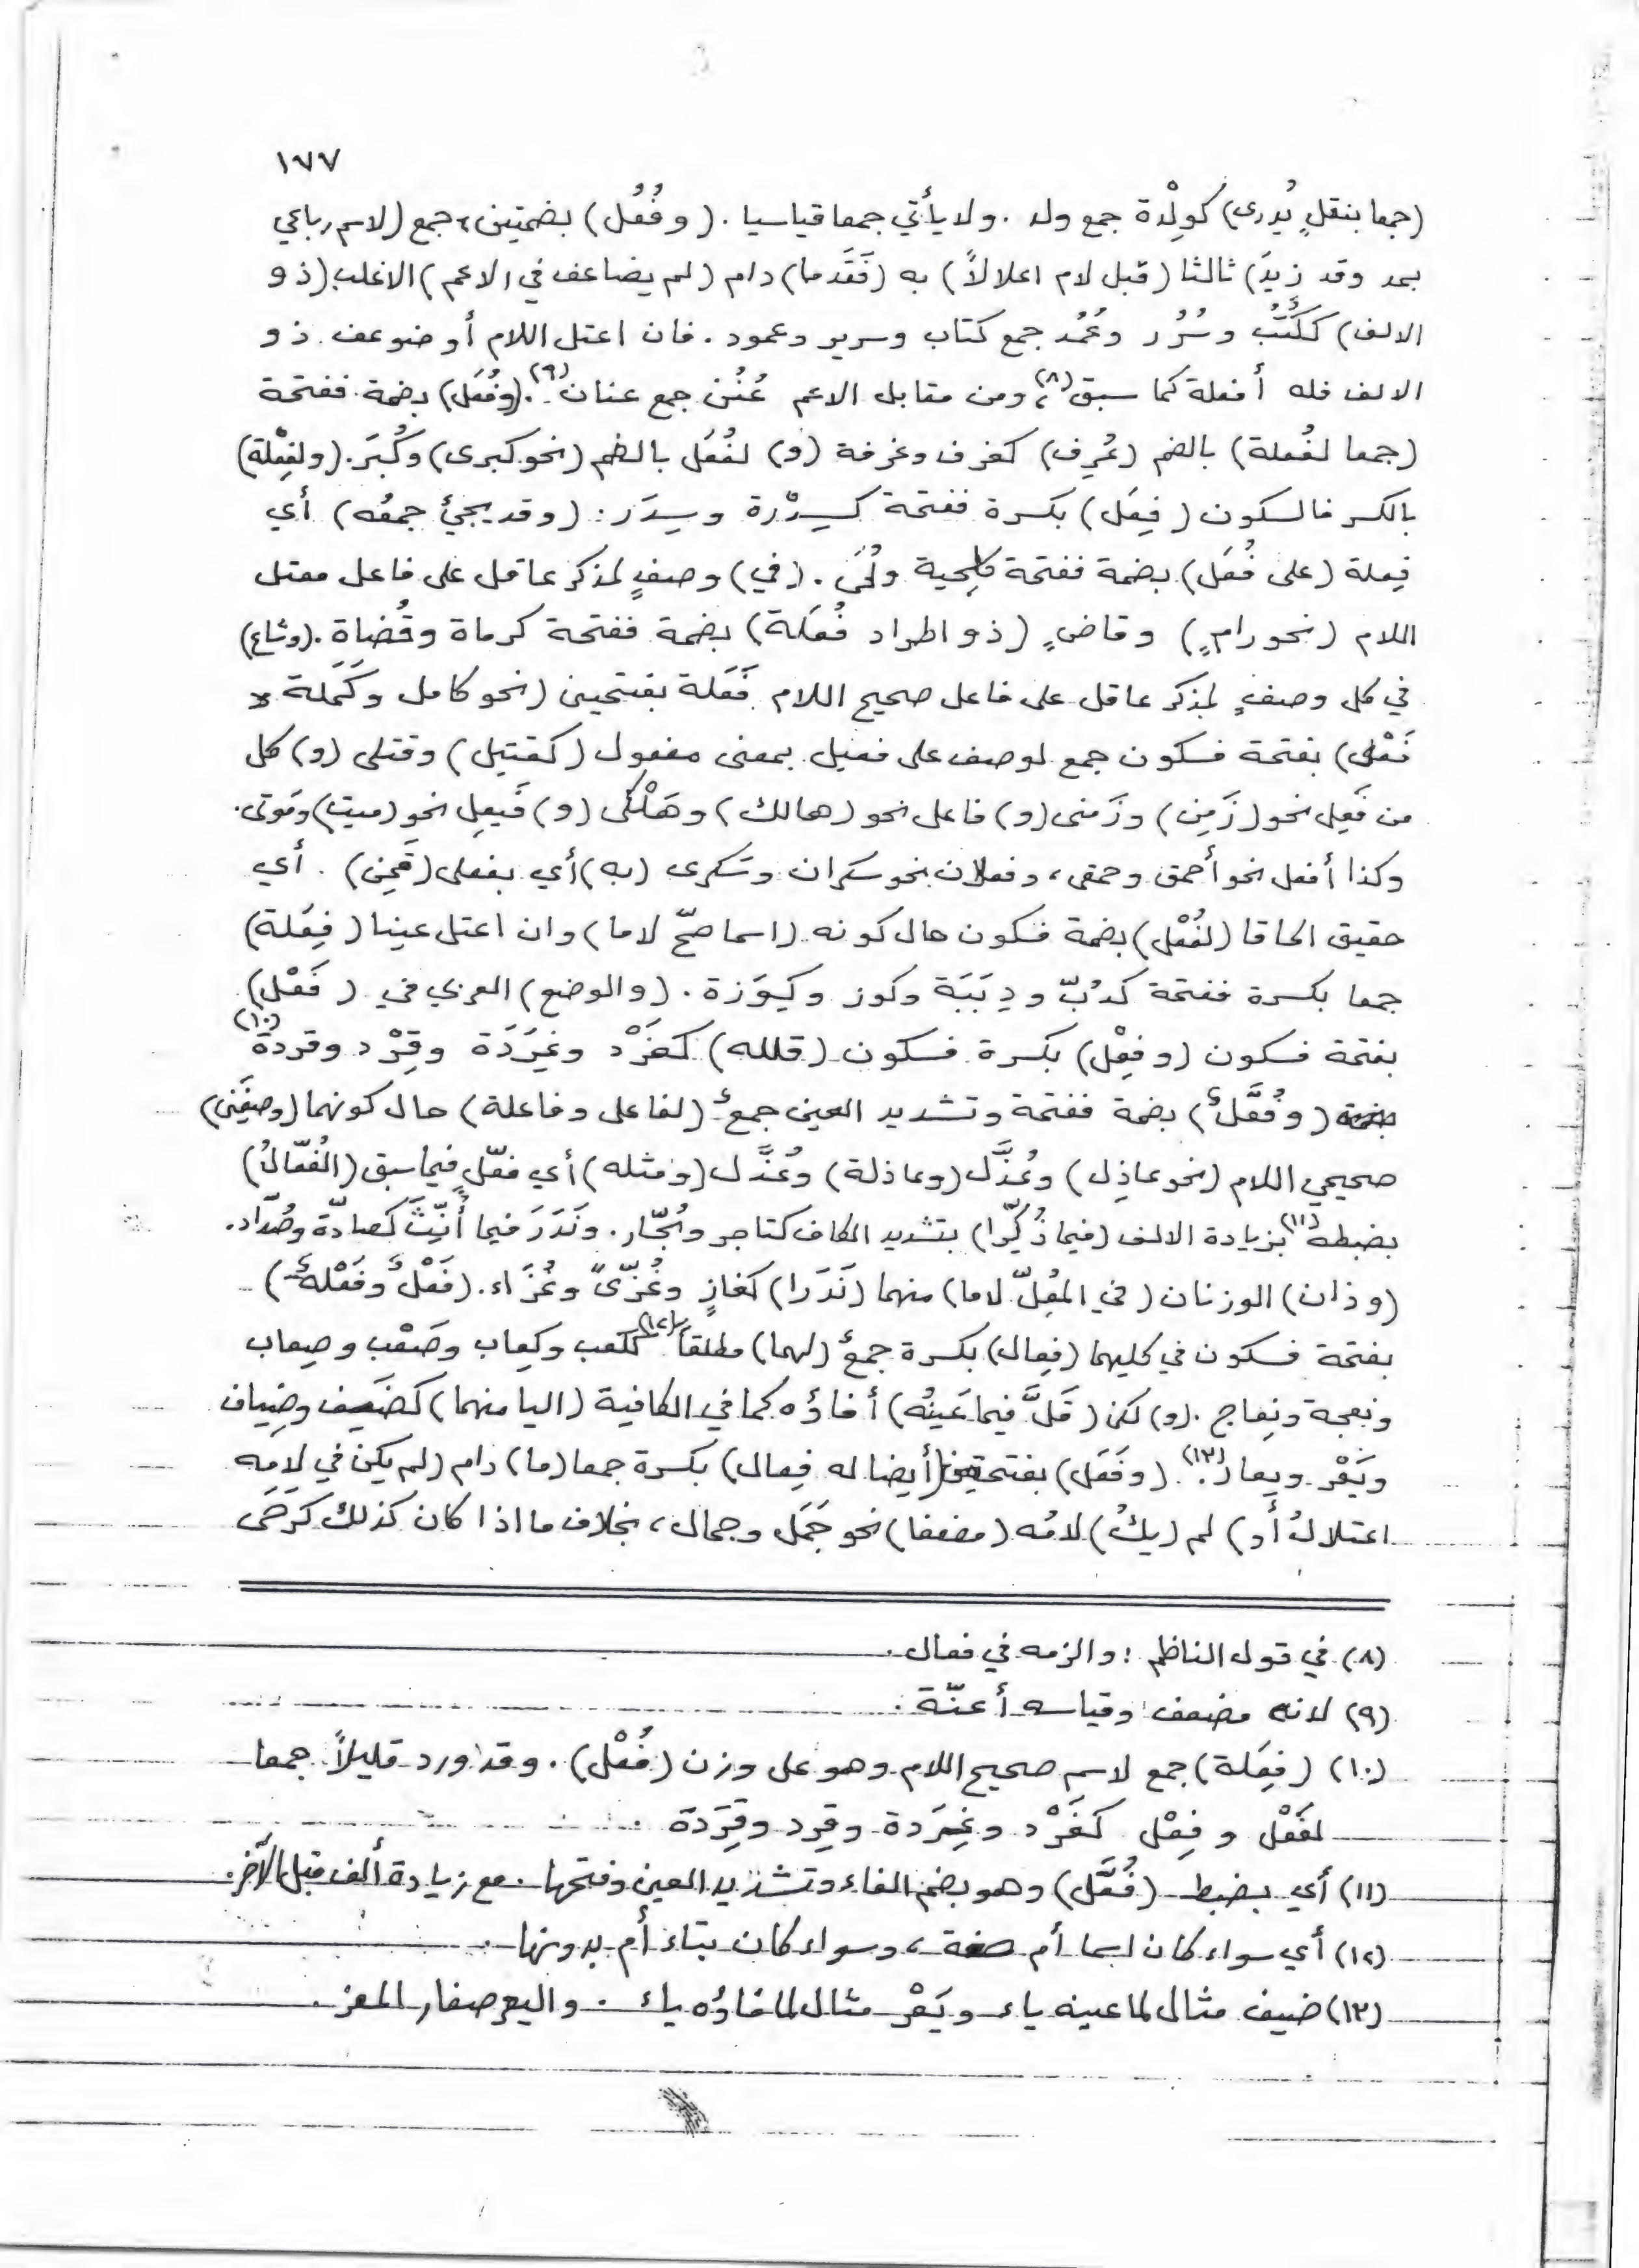 ١٧٧
(جمعا بنقلٍ يُدرى) كوِلْدة جمع ولد . ولا يأتي جمعا قياسيا . (وفُعُل) بضمتين، جمع (لاسم رباعي
بمد وقد زِيدَ) ثالثا (قبل لام اعلالاً) به (فَقَد ما) دام (لم يضاعف في الاعم) الاغلب (ذو
الالف) ككُتُب وسُرُر وعُمُد جمع كتاب وسرير وعمود . فان اعتل اللام أو ضوعف ذو
الالف فله أفعلة كما سبق(٨)، ومن مقابل الاعم عُنُن جمع عنان(٩). (وفُعَل) بضمة ففتحة
(جمعا لفُعلة) بالضم (عُرِف) كغرف وغرفة (و) لفُعْلى بالضم (نحو كبرى) وكُبَر. (ولفِعْلة)
بالكسر فالسكون (فِعَل) بكسرة ففتحة كسِدْرة وسِدَر : (وقد يجئ جمعُه) أي
فِعلة (على فُعَل) بضمة ففتحة كلِحية ولُحَى . (في) وصفٍ لمذكر عاقل على فاعل معتل
اللام (نحو رامٍ) وقاضٍ (ذو اطراد فُعَلة) بضمة ففتحة كرماة وقُضاة . (وشاع)
في كل وصفٍ لمذكر عاقل على فاعل صحيح اللام فَعَلة بفتحيىن (نحو كامل وكَمَلة
فَعْلى) بفتحة فسكون جمع لوصف على فعيل بمعنى مفعول (كقتيل) وقتلى (و) كل
من فَعِل نحو (زَمِن) وزَمنى (و) فاعل نحو (هالك) وهَلْكى (و) فَيعِل نحو (ميت) ومَوتى.
وكذا أفعل نحو أحمق وحمقى، وفعلان نحو سَكران وسَكرى (به) أي بفعلى (قَمِن) . أي
حقيق الحاقا (لفُعْل) بضمة فسكون حال كونه (اسما صحّ لاما) وان اعتل عينا (فِعَلة)
جمعا بكسرة ففتحة كدُبّ ودِبَبَة وكوز وكِوَزة . (والوضع) العربي في (فَعْل)
بفتحة فسكون (وفِعْل) بكسرة فسكون (قلله) كغَرْد وغِرَدَة وقِرْد وقردة(١٠)
(وفُعَّلٌ) بضمة ففتحة وتشديد العين جمعٌ (لفاعل وفاعلة) حال كونهما (وصفَين)
صحيحي اللام (نحو عاذِل) وعُذَّل (وعاذلة) وعُذَّل (ومثله) أي فعّل فيما سبق (الفُعّالُ)
بضبطه(١١) بزيادة الالف (فيما ذُكِّرا) بتشديد الكاف كتاجر وتُجّار . ونَدَرَ فيما أُنِّثَ كصادّة وصُدّاد.
(وذان) الوزنان (في المُعِلّ لاما) منهما (نَدَرا) كغازٍ وغُزّىً وغُزّاء. (فَعْلٌ وفَعْلةٌ)
بفتحة فسكون في كليهما (فِعال) بكسرة جمعٌ (لهما) مطلقاً(١٢) ككعب وكِعاب وصَعْب وصِعاب
ونعجة ونِعاج . (و) لكن (قَلَّ فيما عَينُه) أفاؤه كما في الكافية (اليا منهما) كضَيف وضِياف
ويَعْر ويِعار(١٣). (وفَعَل) بفتحتين (أيضا له فِعال) بكسرة جمعا (ما) دام (لم يكن في لامِه
اعتلالٌ أو) لم (يكُ) لامُه (مضعفا) نحو جَمَل وجمال، بخلاف ما اذا كان كذلك كرَحَى
(٨) في قول الناظم : والزمه في فعال .
(٩) لانه مضعف وقياسه أعنّة .
(١٠) (فِعَلة) جمع لاسم صحيح اللام وهو على وزن (فُعْل) . وقد ورد قليلاً جمعا
لفَعْل وفِعْل كغَرْد وغِرَدة وقِرد وقِرَدَة .
(١١) أي بضبط (فُعَّل) وهو بضم الفاء وتشديد العين وفتحها . مع زيادة ألف قبل الآخر.
(١٢) أي سواء كان اسما أم صفة، وسواء كان بتاء أم بدونها .
(١٣) ضيف مثال لما عينه ياء ويَعْر مثال لما فاؤه ياء . واليعر صغار المعز .